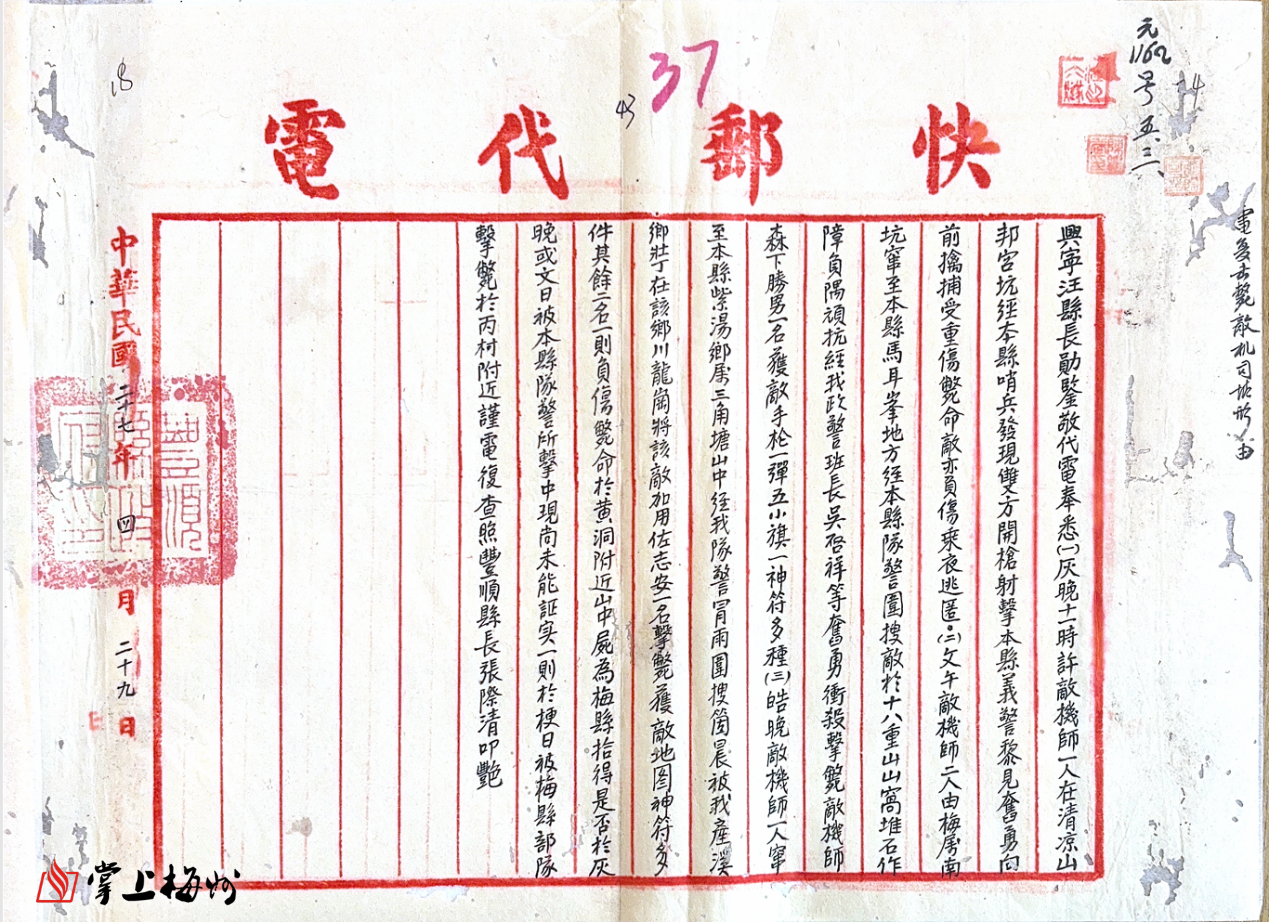 元1162号 五.二
電復击斃敵机司地形由
37
43
18
快郵代電
興寧汪縣長勛鑒敬代電奉悉(一)灰晚十一時許敵機師一人在清凉山
邦宮坑經本縣哨兵發現雙方開槍射擊本縣義警黎見奮勇向
前擒捕受重傷斃命敵亦負傷乘夜逃匿.(二)文午敵機師二人由梅屬南
坑竄至本縣馬耳峯地方經本縣隊警圍搜敵於十八重山山窩堆石作
障負隅頑抗經我政警班長吳啓祥等奮勇衝殺擊斃敵機師
森下勝男一名獲敵手枪一彈五小旗一神符多種(三)皓晚敵機師一人竄
至本縣紫湯鄉屬三角塘山中經我隊警冒雨圍搜箇晨被我產溪
鄉莊丁在該鄉川龍崗將該敵加用佐志安一名擊斃獲敵地图神符多
件其餘二名一則負傷斃命於黄洞附近山中屍為梅縣拾得是否於灰
晚或文日被本縣隊警所擊中現尚未能証实一則於梗日被梅縣部隊
擊斃於丙村附近謹電復查照豐順縣長張際清叩艷
中華民國二十七年四月二十九日
豐順縣政府印
掌上梅州